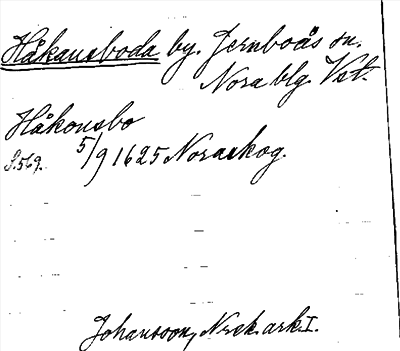 Håkansboda by. Jernboås sn.
Nora blg. Vst.
Håkonsbo
S. 569. 5/9 1625 Noraskog.
Johansson, Nrsk. ark. I.